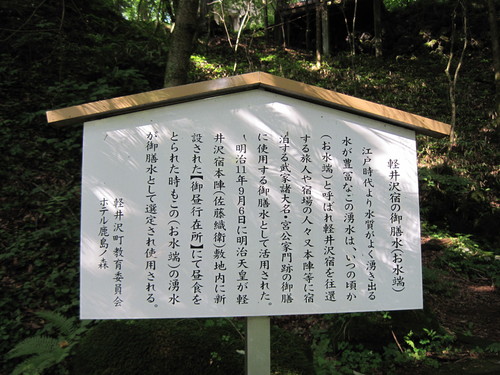 軽井沢宿の御膳水(お水端)
江戸時代より水質がよく湧き出る
水が豊富なこの湧水は、いつの頃か
(お水端)と呼ばれ軽井沢宿を往還
する旅人や宿場の人々又本陣等に宿
泊する武家諸大名・宮公家門跡の御膳
に使用する御膳水として活用された。
明治11年9月6日に明治天皇が軽
井沢宿本陣(佐藤織衛)敷地内に新
設された【御昼行在所】にて昼食を
とられた時もこの(お水端)の湧水
が御膳水として選定され使用される。
軽井沢町教育委員会
ホテル鹿島ノ森